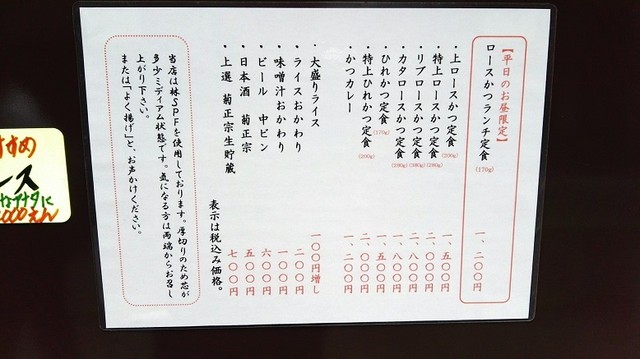 【平日のお昼限定】
ロースかつランチ定食(170g) 一、二〇〇円
・上ロースかつ定食(200g) 一、五〇〇円
・特上ロースかつ定食(280g) 二、〇〇〇円
・リブロースかつ定食(280g) 一、八〇〇円
・カタロースかつ定食(280g) 一、八〇〇円
・ひれかつ定食(170g) 一、五〇〇円
・特上ひれかつ定食(200g) 二、〇〇〇円
・かつカレー 一、二〇〇円
・大盛りライス 一〇〇円増し
・ライスおかわり 二〇〇円
・味噌汁おかわり 一〇〇円
・ビール 中ビン 六〇〇円
・日本酒 菊正宗 五〇〇円
・上選 菊正宗生貯蔵 七〇〇円
表示は税込み価格。
当店は林SPFを使用しております。厚切りのため芯が
多少ミディアム状態です。気になる方は両端からお召し
上がり下さい。
または「よく揚げ」と、お声かけください。
すめ
ース
なアナタに
000えん